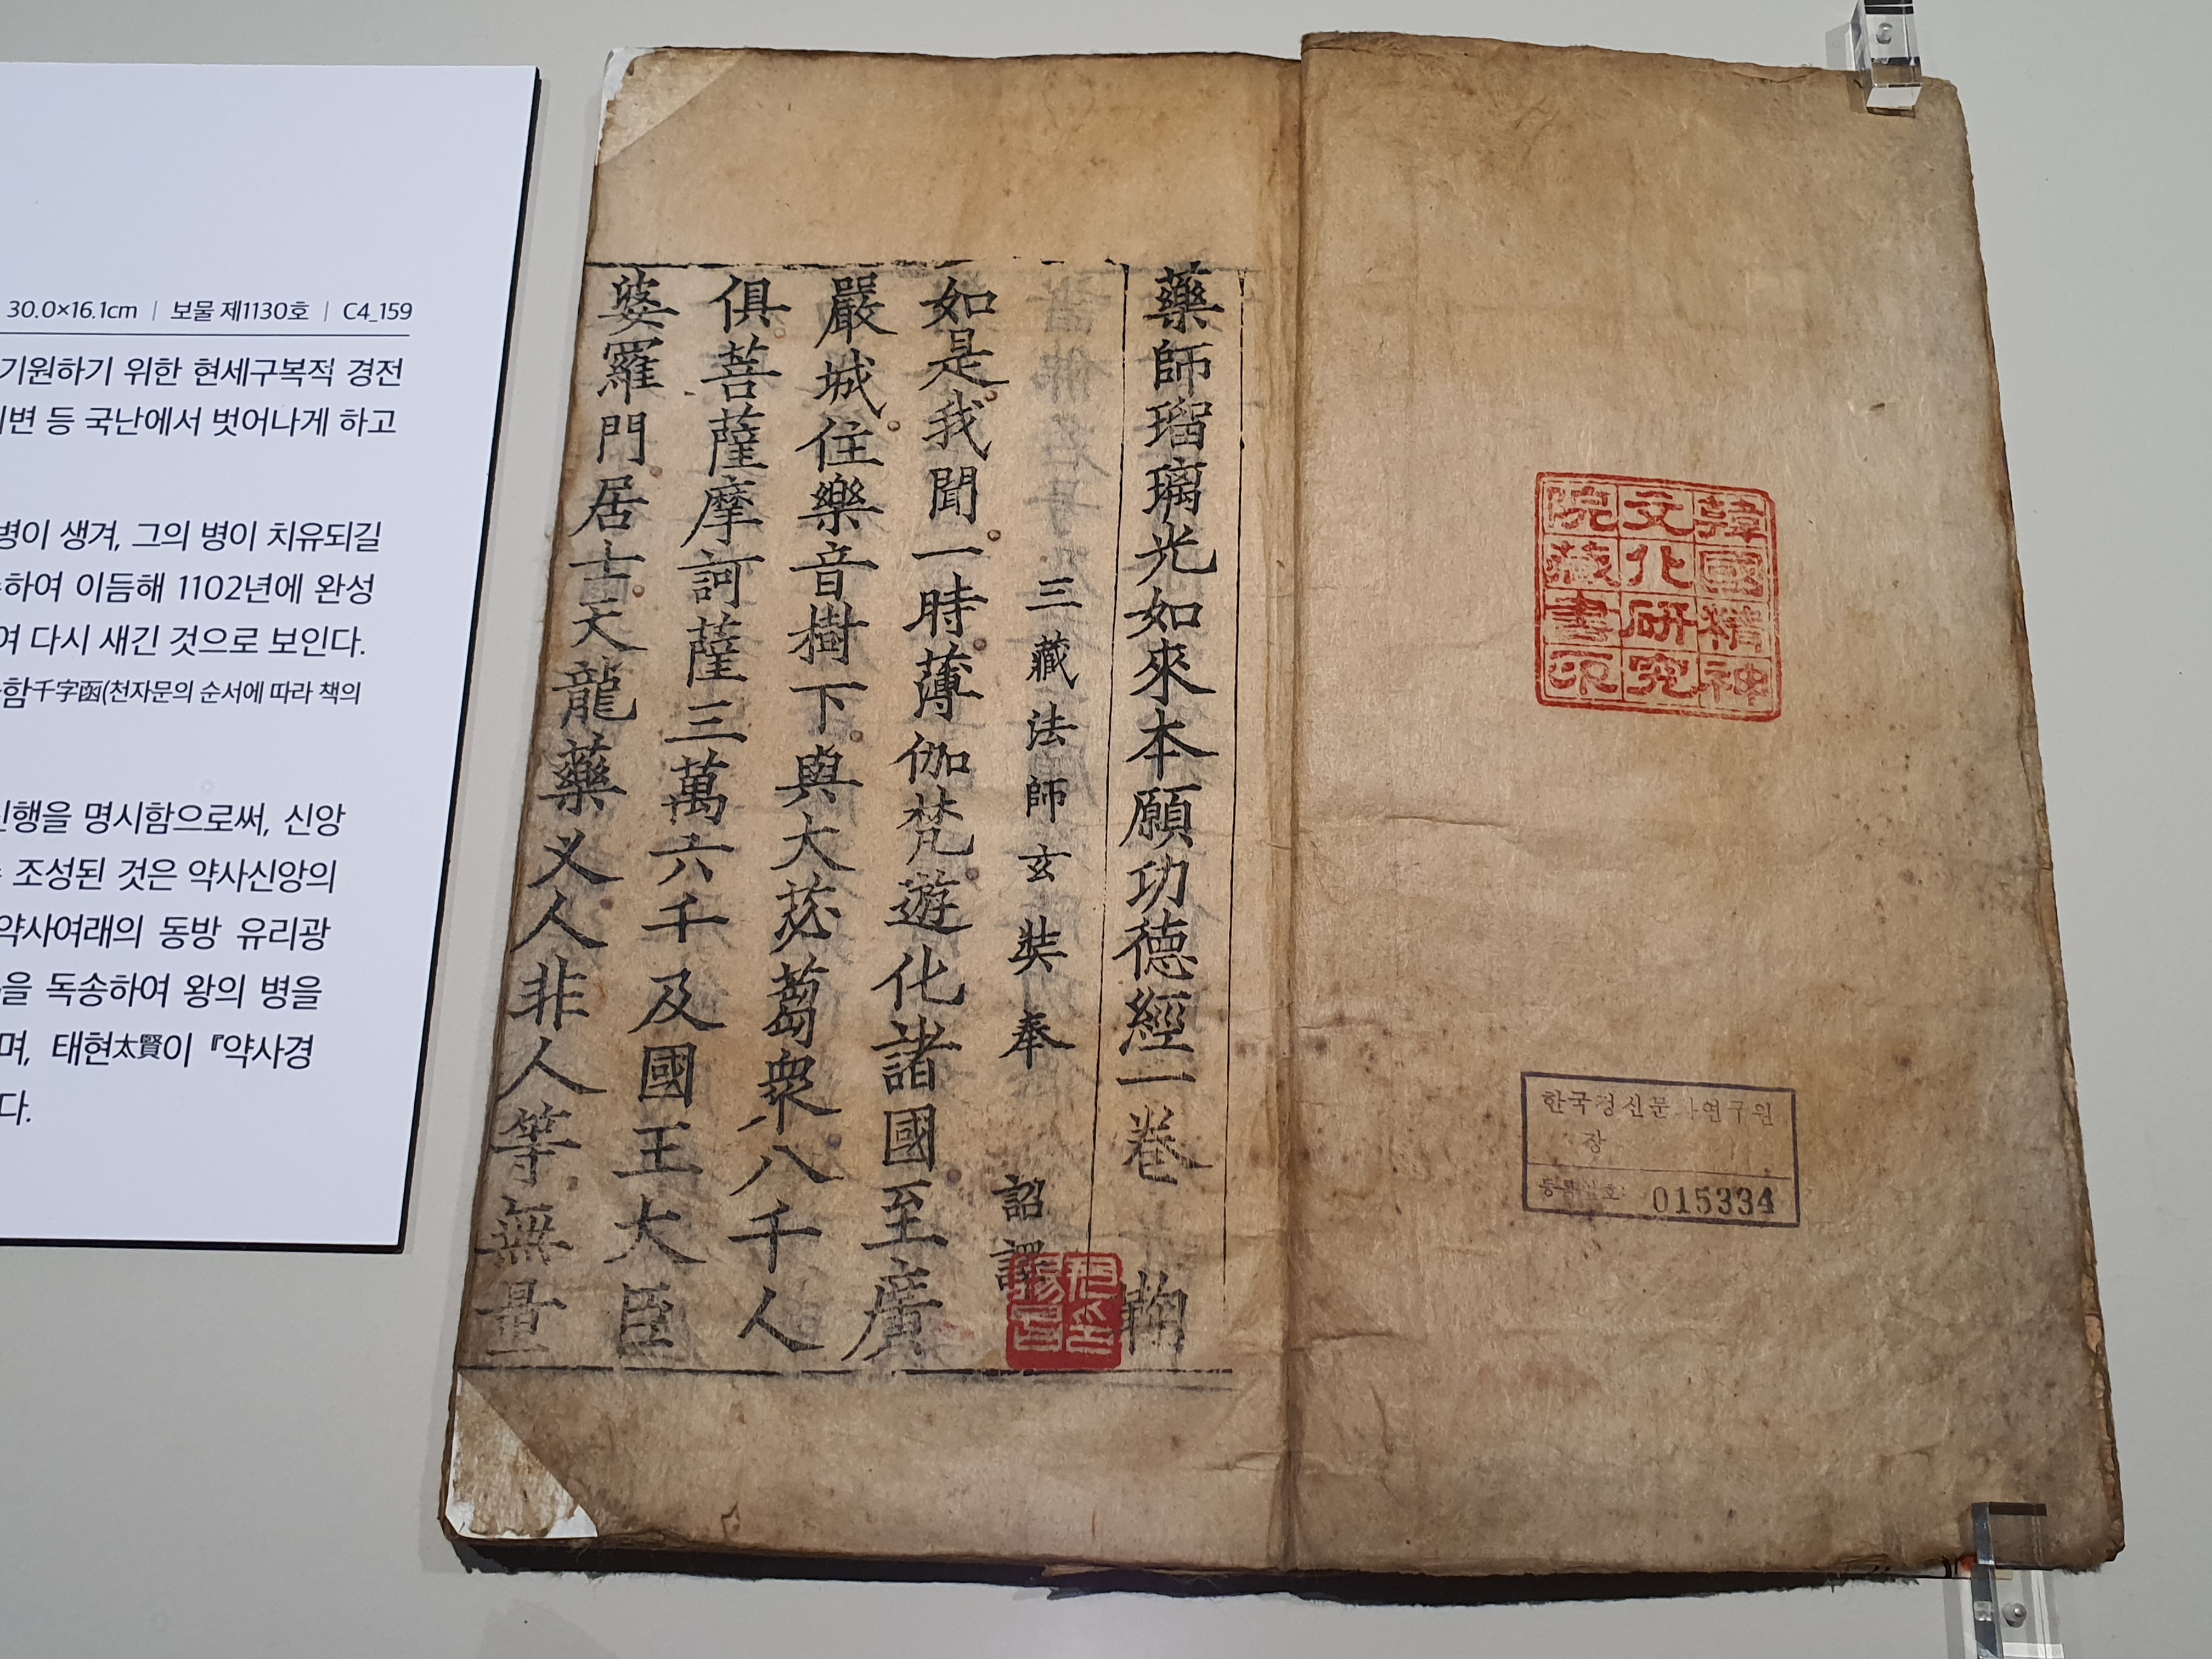 30.0×16.1cm | 보물 제1130호 | C4_159
기원하기 위한 현세구복적 경전
변 등 국난에서 벗어나게 하고
병이 생겨, 그의 병이 치유되길
하여 이듬해 1102년에 완성
여 다시 새긴 것으로 보인다.
함千字函(천자문의 순서에 따라 책의
신행을 명시함으로써, 신앙
조성된 것은 약사신앙의
약사여래의 동방 유리광
을 독송하여 왕의 병을
며, 태현太賢이 『약사경
다.
韓國精神
文化硏究
院藏書印
한국정신문화연구원
장
등록번호: 015334
藥師瑠璃光如來本願功德經一卷
三藏法師玄奘奉 詔譯
如是我聞一時薄伽梵遊化諸國至廣
嚴城住樂音樹下與大苾蒭衆八千人
俱菩薩摩訶薩三萬六千及國王大臣
婆羅門居士天龍藥叉人非人等無量